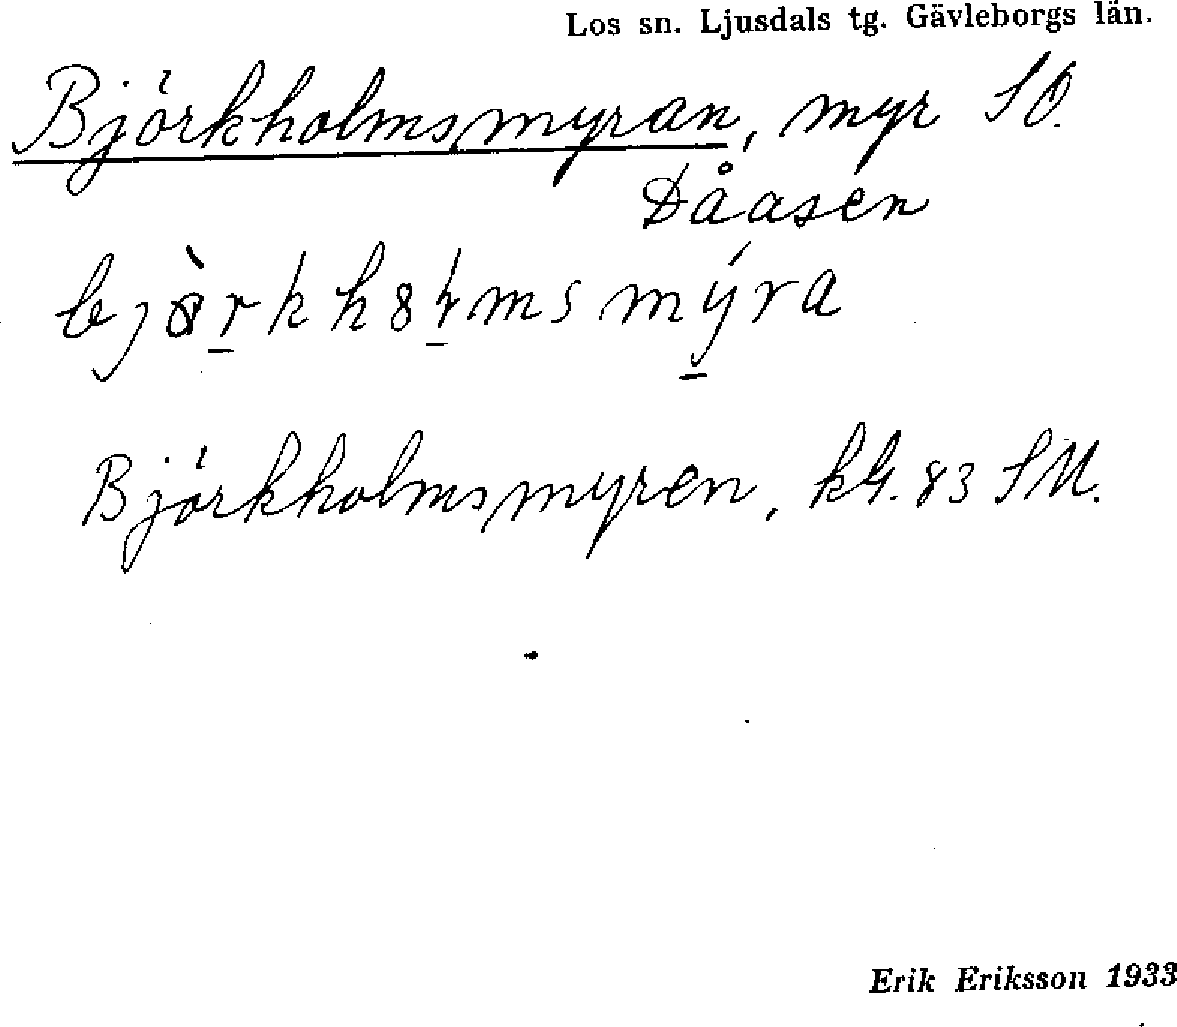 Los sn. Ljusdals tg. Gävleborgs län.
Björkholmsmyran, myr SO.
Dåasen
Björkholmsmyren, kbl. 83 SM.
Erik Eriksson 1933